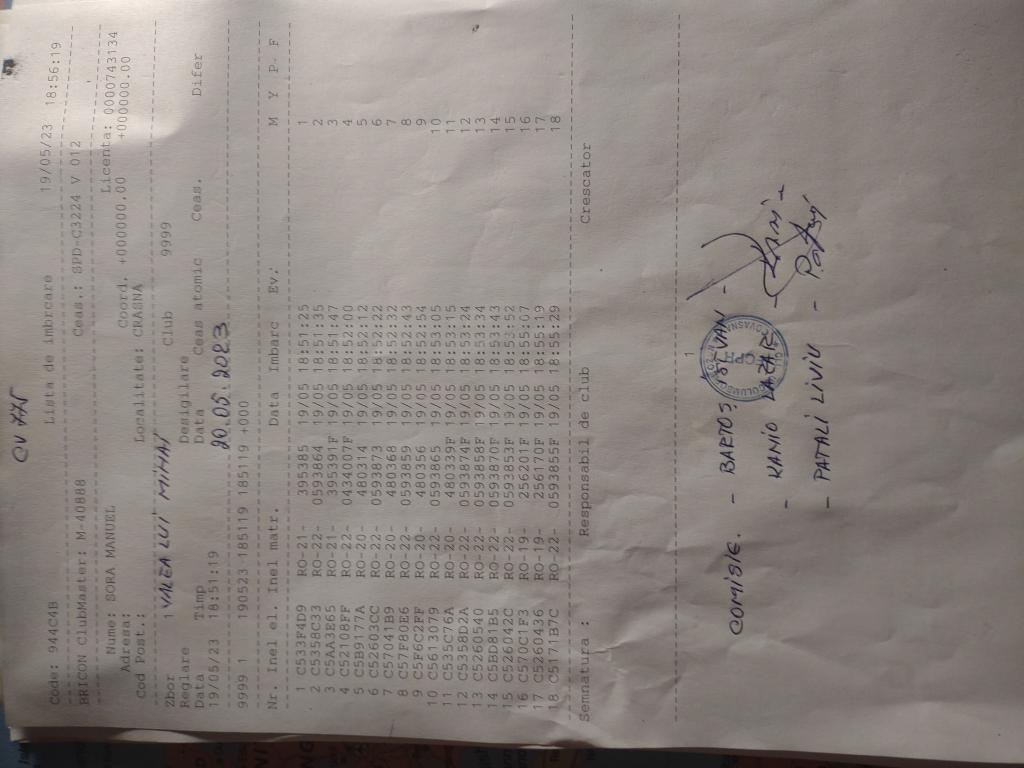 CV 775
Code: 944C4B Lista de imbrcare 19/05/23 18:56:19
BRICON ClubMaster: M-40888 Ceas.: SPD-G3224 V 012
Nume: SORA MANUEL Licenta: 0000743134
Adresa: Coord. +000000.00 +000000.00
Cod Post.: Localitate: CRASNA
Zbor 1 VALEA LUI MIHAI Club 9999
Reglare Desigilare
Data Timp Data Ceas atomic Ceas. Difer
19/05/23 18:51:19 20.05.2023
9999 1 190523 185119 185119 +000
Nr. Inel el. Inel matr. Data Imbarc Ev. M Y P. F
1 C533F4D9 RO-21- 395385 19/05 18:51:25 1
2 C5358C33 RO-22- 0593864 19/05 18:51:35 2
3 C5AA3E65 RO-21- 395391F 19/05 18:51:47 3
4 C52108FF RO-22- 0434007F 19/05 18:52:00 4
5 C5B9177A RO-20- 480314 19/05 18:52:12 5
6 C52603CC RO-22- 0593873 19/05 18:52:22 6
7 C57041B9 RO-20- 480368 19/05 18:52:32 7
8 C57F80E6 RO-22- 0593859 19/05 18:52:43 8
9 C5F6C2FF RO-20- 480356 19/05 18:52:54 9
10 C5613079 RO-22- 0593865 19/05 18:53:05 10
11 C535C76A RO-20- 480339F 19/05 18:53:15 11
12 C5358D2A RO-22- 0593874F 19/05 18:53:24 12
13 C5260540 RO-22- 0593858F 19/05 18:53:34 13
14 C5BD81B5 RO-22- 0593870F 19/05 18:53:43 14
15 C526042C RO-22- 0593853F 19/05 18:53:52 15
16 C570C1F3 RO-19- 256201F 19/05 18:55:07 16
17 C5260436 RO-19- 256170F 19/05 18:55:19 17
18 C5171B7C RO-22- 0593855F 19/05 18:55:29 18
Semnatura : Responsabil de club Crescator
1
COMISIE. - BARTOS ISTVAN -
- HANIO LAZAR -
- PATALI LIVIU -
CPR
COVASNA